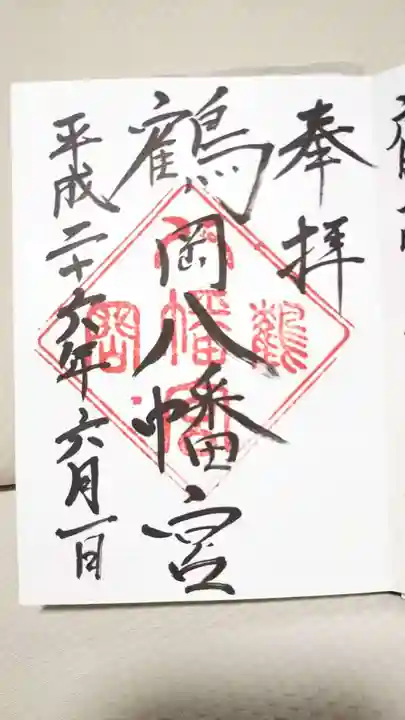 奉拝
鶴岡八幡宮
平成二十六年六月一日
鶴
八幡宮
岡